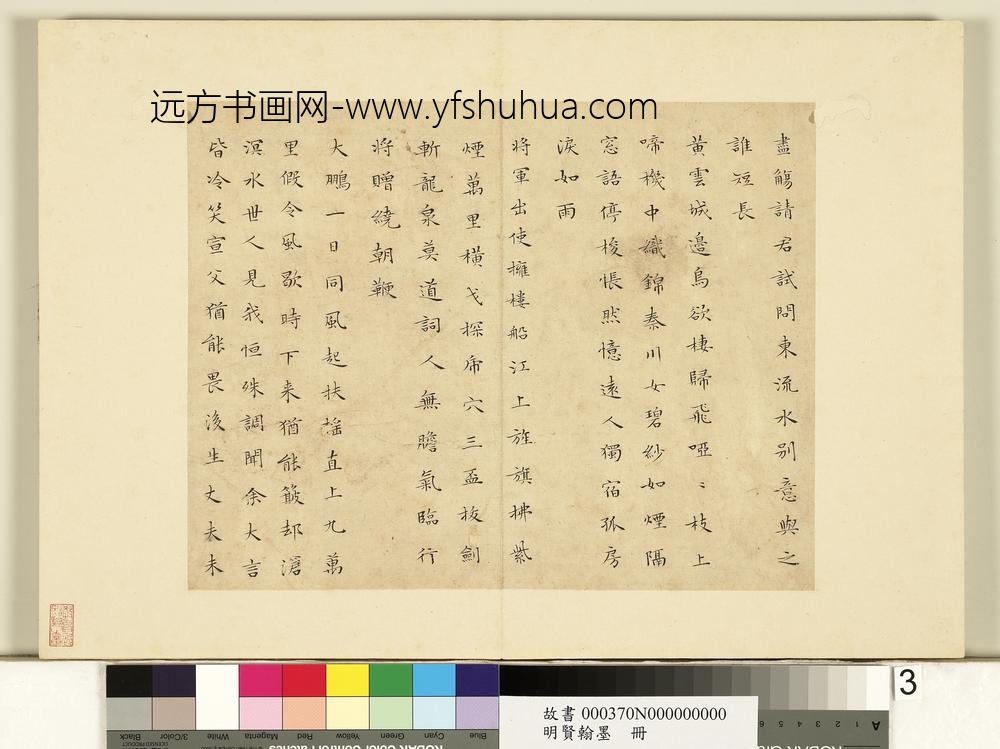 远方书画网-www.yfshuhua.com
盡觴請君試問東流水別意與之
誰短長
黃雲城邊烏欲棲歸飛啞〻枝上
啼機中織錦秦川女碧紗如煙隔
窓語停梭悵然憶遠人獨宿孤房
淚如雨
將軍出使擁樓船江上旌旗拂紫
煙萬里橫戈探虎穴三盃拔劍
斬龍泉莫道詞人無膽氣臨行
將贈繞朝鞭
大鵬一日同風起扶搖直上九萬
里假令風歇時下来猶能簸却滄
溟水世人見我恒殊調聞余大言
皆冷笑宣父猶能畏後生丈夫未
3
故書 000370N000000000
明賢翰墨 冊
Black
3/Color
White
Magenta
Red
Yellow
Green
Cyan
Blue
A 1 2 3 4 5 6